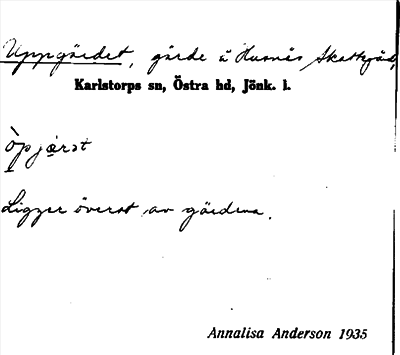 Uppgärdet, gärde å Husnäs Skattegård,
Karlstorps sn, Östra hd, Jönk. l.
Ligger överst av gärdena.
Annalisa Anderson 1935